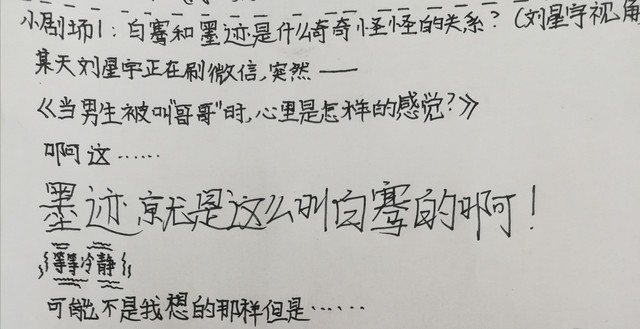 小剧场1：白骞和墨迹是什么奇奇怪怪的关系？（刘星宇视角
某天刘星宇正在刷微信，突然——
《当男生被叫“哥哥”时，心里是怎样的感觉？》
啊这……
墨迹就是这么叫白骞的啊！
等等冷静
可能不是我想的那样但是……